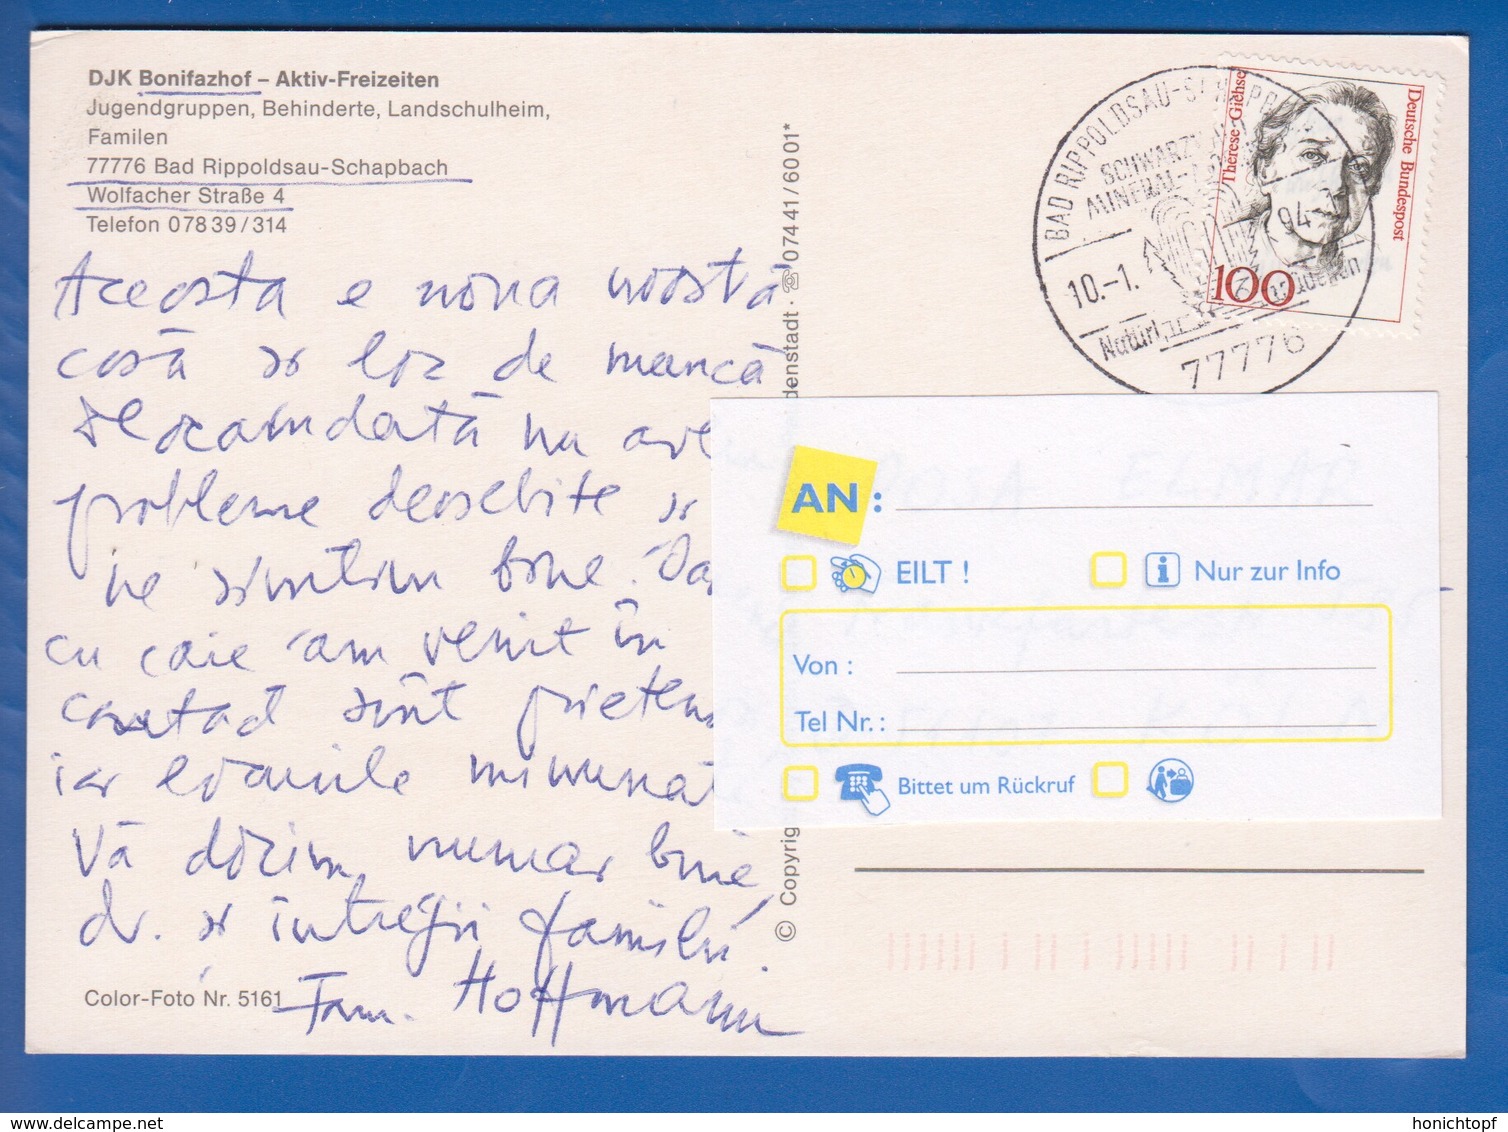 DJK Bonifazhof – Aktiv-Freizeiten
Jugendgruppen, Behinderte, Landschulheim,
Familen
77776 Bad Rippoldsau-Schapbach
Wolfacher Straße 4
Telefon 07839/314
Aceasta e noua noastră
casă și loc de muncă
deocamdată nu av
probleme deosebite și
ne simțim bine.
cu care am venit în
contact sînt prieten
iar
minunat
Vă dorim numai bine,
dv. și întregii familii.
Fam. Hoffmann
Color-Foto Nr. 5161
© Copyrig
denstadt · ☎ 07441/6001*
BAD RIPPOLDSAU-SCHAPP
SCHWARZW
MINERAL-
10.-1.
94-
Natürl
77776
Thérèse Giehse
Deutsche Bundespost
100
AN:
EILT !
Nur zur Info
Von :
Tel Nr. :
Bittet um Rückruf
honichtopf
delcampe.net